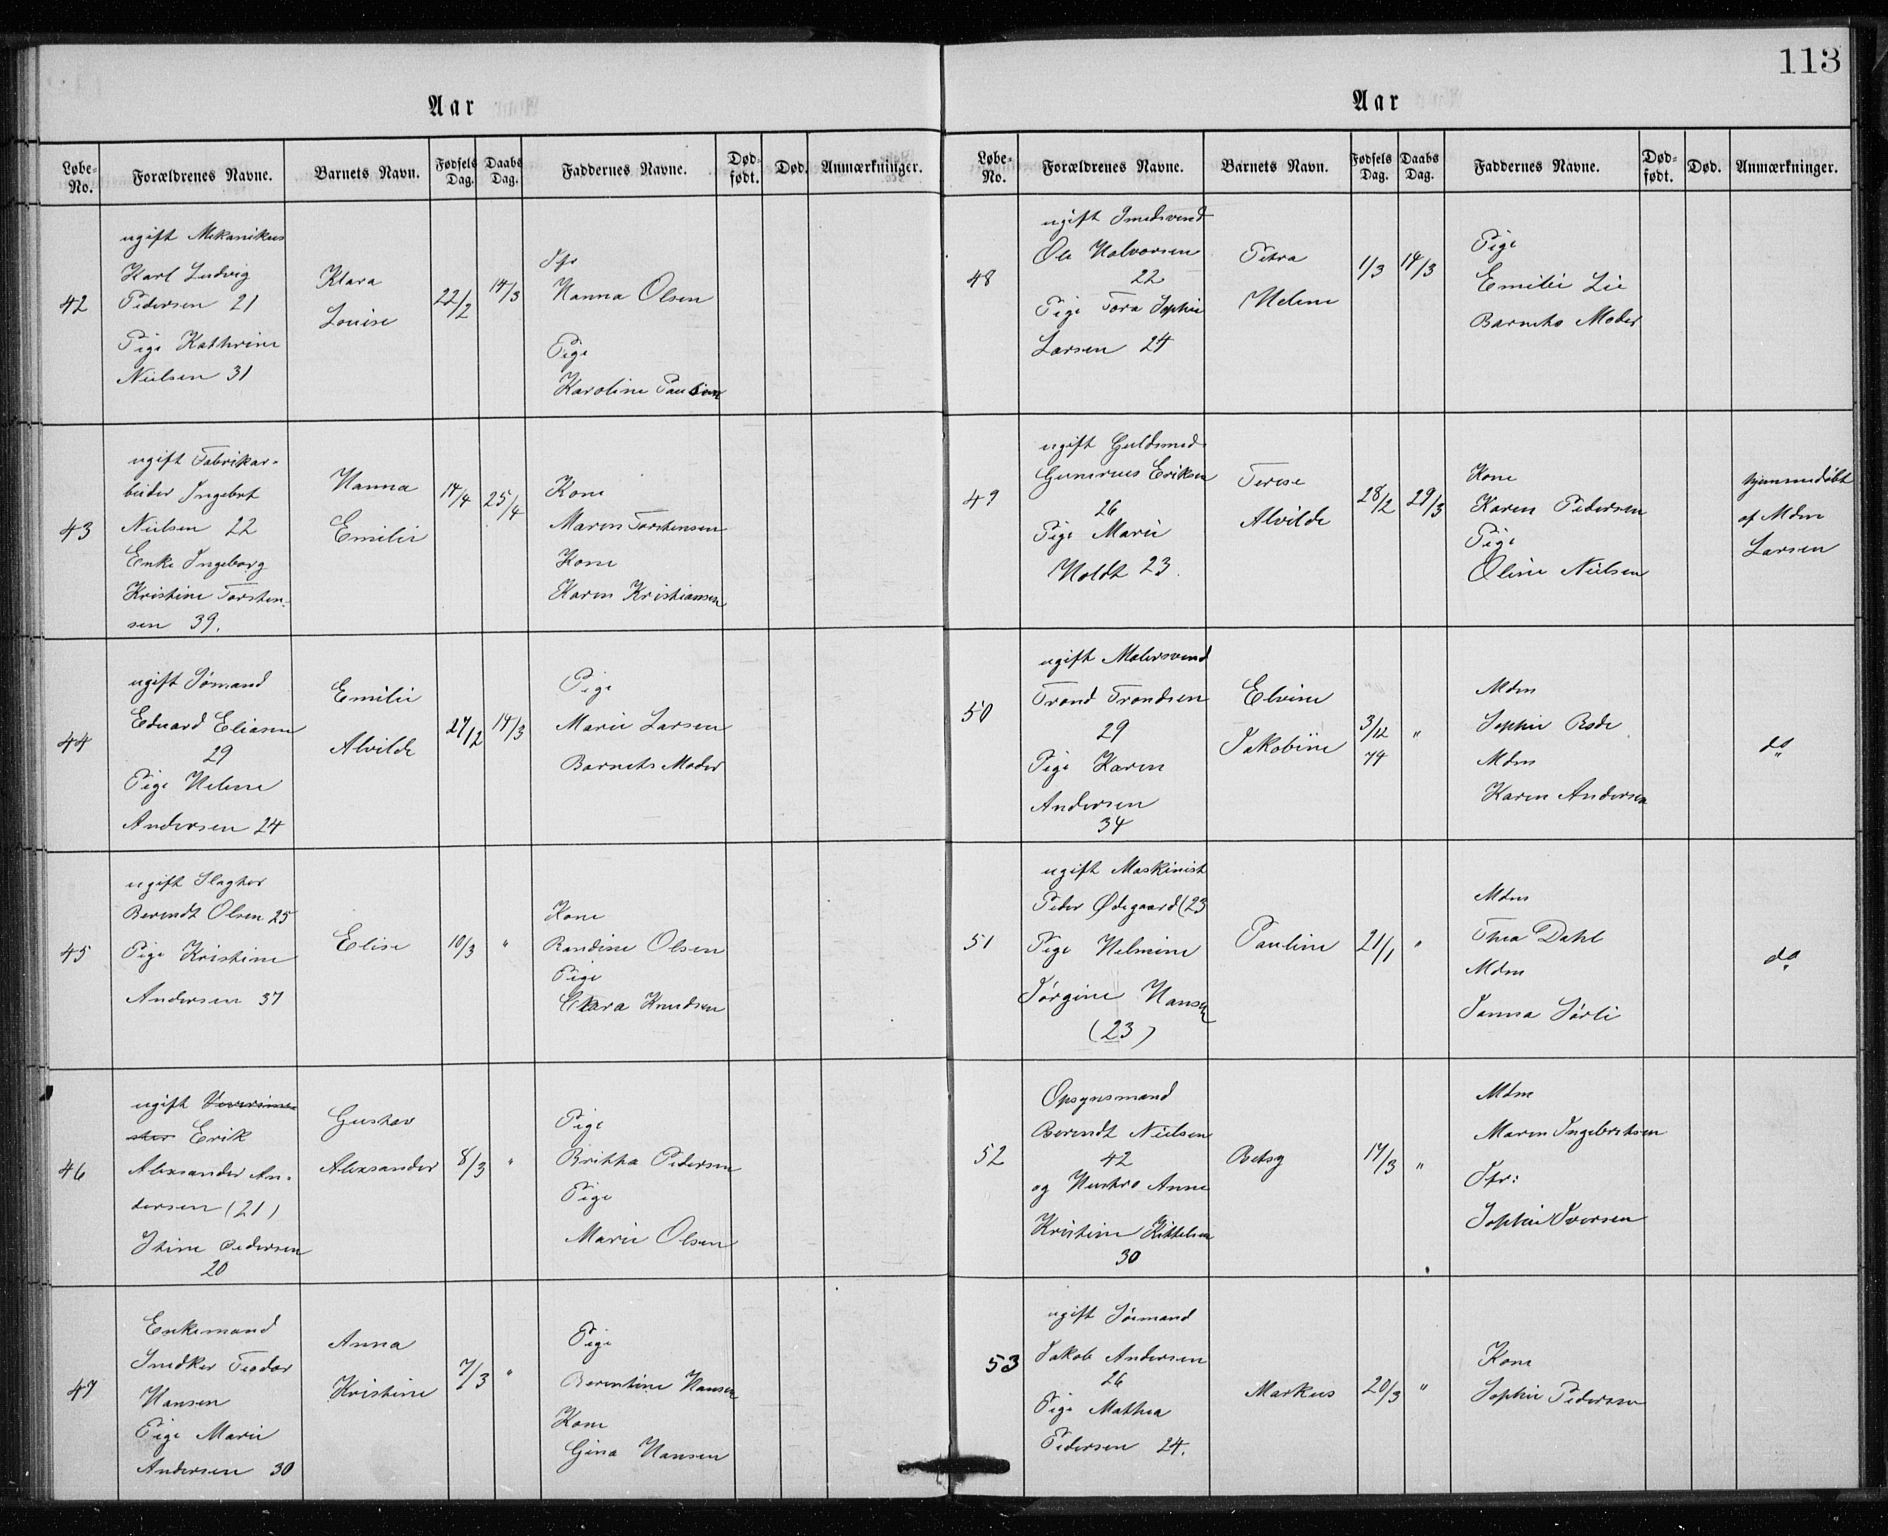 113
Aar
Løbe-No. Forældrenes Navne. Barnets Navn. Fødsels Dag. Daabs Dag. Faddernes Navne. Død-født. Død. Anmærkninger.
42
ugift Mekanikus
Karl Ludvig
Pedersen 21
Pige Kathrine
Nielsen 31
Klara
Louise
22/2
14/3
Hanna Olsen
Pige
Karoline Paulsen
43
ugift Fabrikar-
beider Ingebrt
Nielsen 22
Enke Ingeborg
Kristine Torsten-
sen 39.
Hanna
Emilie
14/4
25/4
Kone
Maren Torstensen
Kone
Karen Kristiansen
44
ugift Sømand
Eduard Eliasen
29
Pige Helene
Andersen 24
Emilie
Alvilde
27/12
14/3
Pige
Marie Larsen
Barnets Moder
45
ugift Slagter
Berendt Olsen 25
Pige Kristine
Andersen 37
Elise
10/3
"
Kone
Randine Olsen
Pige
Clara Knudsen
46
ugift
Erik
Alexsander An-
dersen (21)
Stine Pedersen
20
Gustav
Alexsander
8/3
"
Pige
Britha Pedersen
Pige
Marie Olsen
47
Enkemand
Snedker Teodor
Hansen
Pige Marie
Andersen 30
Anna
Kristine
7/3
"
Pige
Berentine Hansen
Kone
Gina Hansen
Aar
Løbe-No. Forældrenes Navne. Barnets Navn. Fødsels Dag. Daabs Dag. Faddernes Navne. Død-født. Død. Anmærkninger.
48
ugift Smedsvend
Ole Halvorsen
22
Pige Tora Sophie
Larsen 24
Petra
Helene
1/3
14/3
Pige
Emilie Lie
Barnets Moder
49
ugift Guldsmed
Gunerius Eriksen
26
Pige Marie
Holdt 23.
Terese
Alvilde
28/2
29/3
Kone
Karen Pedersen
Pige
Oline Nielsen
hjemmedøbt
af Mdm
Larsen
50
ugift Malersvend
Trond Trondsen
29
Pige Karen
Andersen
34
Elvine
Jakobine
3/12
74
"
Mdm
Sophie Bode
Mdm
Karen Andersen
do
51
ugift Maskinist
Peder Ødegaard (23
Pige Helmine
Jørgine Hansen
(23)
Pauline
21/1
"
Mdm
Thea Dahl
Mdm
Janna Sørli
do
52
Opsynsmand
Berendt Nielsen
42
og Hustro Anne
Kristine Kittelsen
30
Betsy
14/3
"
Mdm
Maren Ingebretsen
Sophie Iversen
53
ugift Sømand
Jakob Andersen
26
Pige Mathea
Pedersen 24.
Markus
20/3
"
Kone
Sophie Pedersen